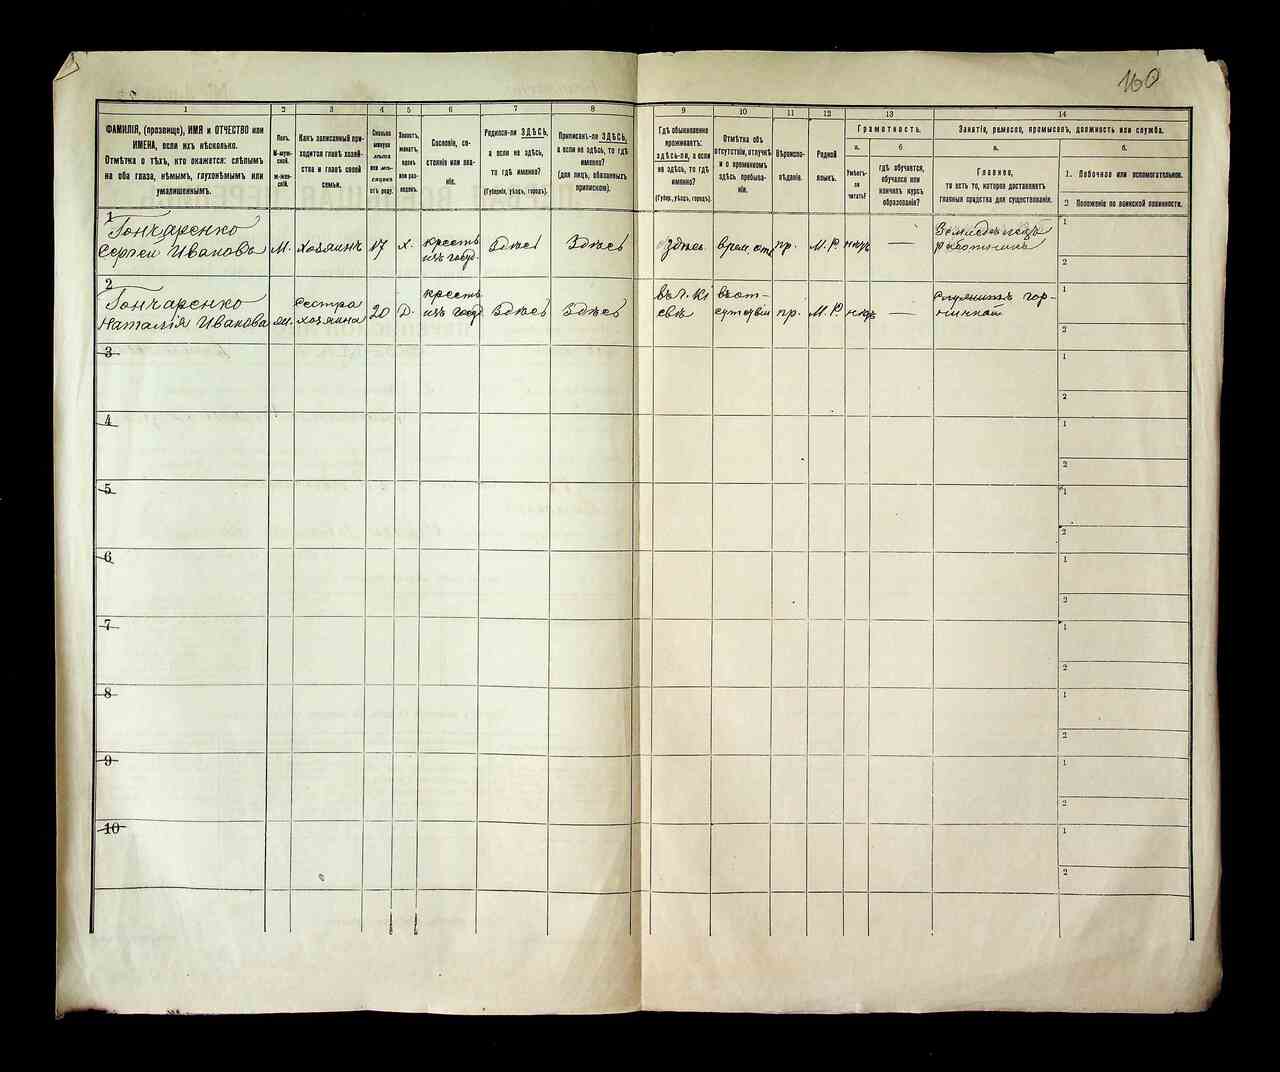 160
1 2 3 4 5 6 7 8 9 10 11 12 13 14
ФАМИЛІЯ, (прозвище), ИМЯ и ОТЧЕСТВО или
ИМЕНА, если ихъ нѣсколько.
Отмѣтка о тѣхъ, кто окажется: слѣпымъ
на оба глаза, нѣмымъ, глухонѣмымъ или
умалишеннымъ.
Полъ.
М-муж-
ской.
ж-жен-
скій.
Какъ записанный при-
ходится главѣ хозяй-
ства и главѣ своей
семьи.
Сколько
минуло
лѣтъ
или мѣ-
сяцевъ
отъ роду.
Холостъ,
женатъ,
вдовъ
или раз-
веденъ.
Сословіе, со-
стояніе или зва-
ніе.
Родился-ли ЗДѢСЬ,
а если не здѣсь,
то гдѣ именно?
(Губернія, уѣздъ, городъ).
Приписанъ-ли ЗДѢСЬ,
а если не здѣсь, то гдѣ
именно?
(для лицъ, обязанныхъ
припискою).
Гдѣ обыкновенно
проживаетъ:
здѣсь-ли, а если
не здѣсь, то гдѣ
именно?
(Губер., уѣздъ, городъ).
Отмѣтка объ
отсутствіи, отлучкѣ
и о временномъ
здѣсь пребыва-
ніи.
Вѣроиспо-
вѣданіе.
Родной
языкъ.
Грамотность.
а.
Умѣетъ-
ли
читать?
б
гдѣ обучается,
обучался или
кончилъ курсъ
образованія?
Занятія, ремесло, промыселъ, должность или служба.
а.
Главное,
то есть то, которое доставляетъ
главныя средства для существованія.
б.
1. Побочное или вспомогательное.
2 Положеніе по воинской повинности.
1
Гончаренко
Сергей Ивановъ М. хозяинъ 17 х. крестъ изъ госуд. Здѣсь Здѣсь здѣсь врем. от. пр. М.Р. нѣтъ — Земледѣлецъ
работникъ
1
2
2
Гончаренко
Наталія Иванова ж. сестра хозяина 20 Д. крестъ изъ госуд Здѣсь Здѣсь въ г. Кі
евѣ въ от-
сутствіи пр. М.Р. нѣтъ — служитъ гор-
ничной
1
2
3
1
2
4
1
2
5
1
2
6
1
2
7
1
2
8
1
2
9
1
2
10
1
2